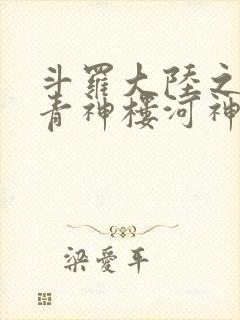 斗羅大陸之
青神樓河神
梁愛平